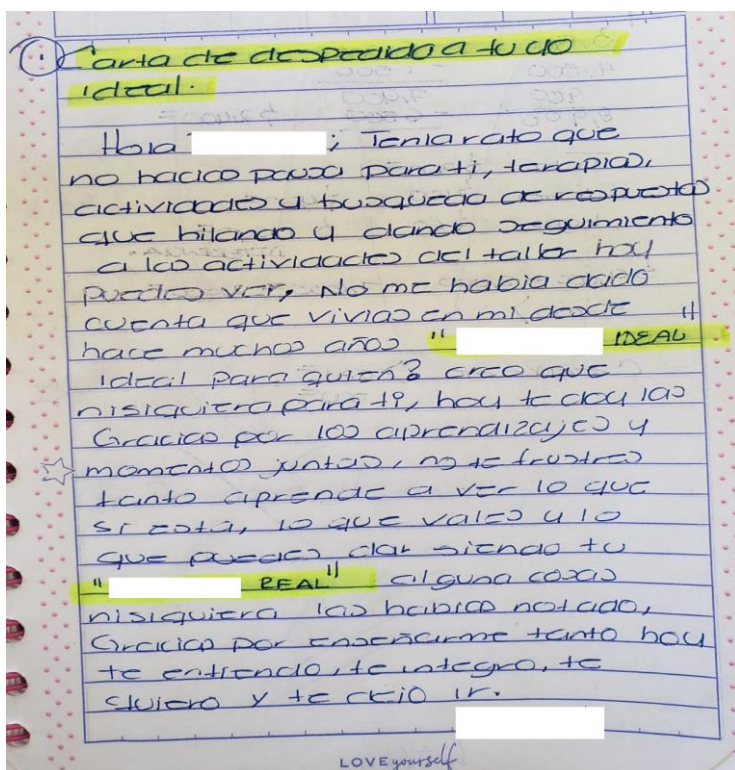 1 Carta de despedida a tu yo
ideal.
Hola ; Tenia rato que
no hacias pausa para ti, terapias,
actividades y busqueda de respuestas
que hilando y dando seguimiento
a las actividades del taller hoy
puedes ver, No me habia dado
cuenta que vivias en mi desde
hace muchos años " IDEAL "
ideal para quien? creo que
nisiquiera para ti, hoy te doy las
Gracias por los aprendizajes y
momentos juntas, no te frustres
tanto aprende a ver lo que
si esta, lo que vales y lo
que puedes dar siendo tu
" REAL" alguna cosas
nisiquiera las habias notado,
Gracias por enseñarme tanto hoy
te entiendo, te integro, te
quiero y te dejo ir.
LOVE yourself